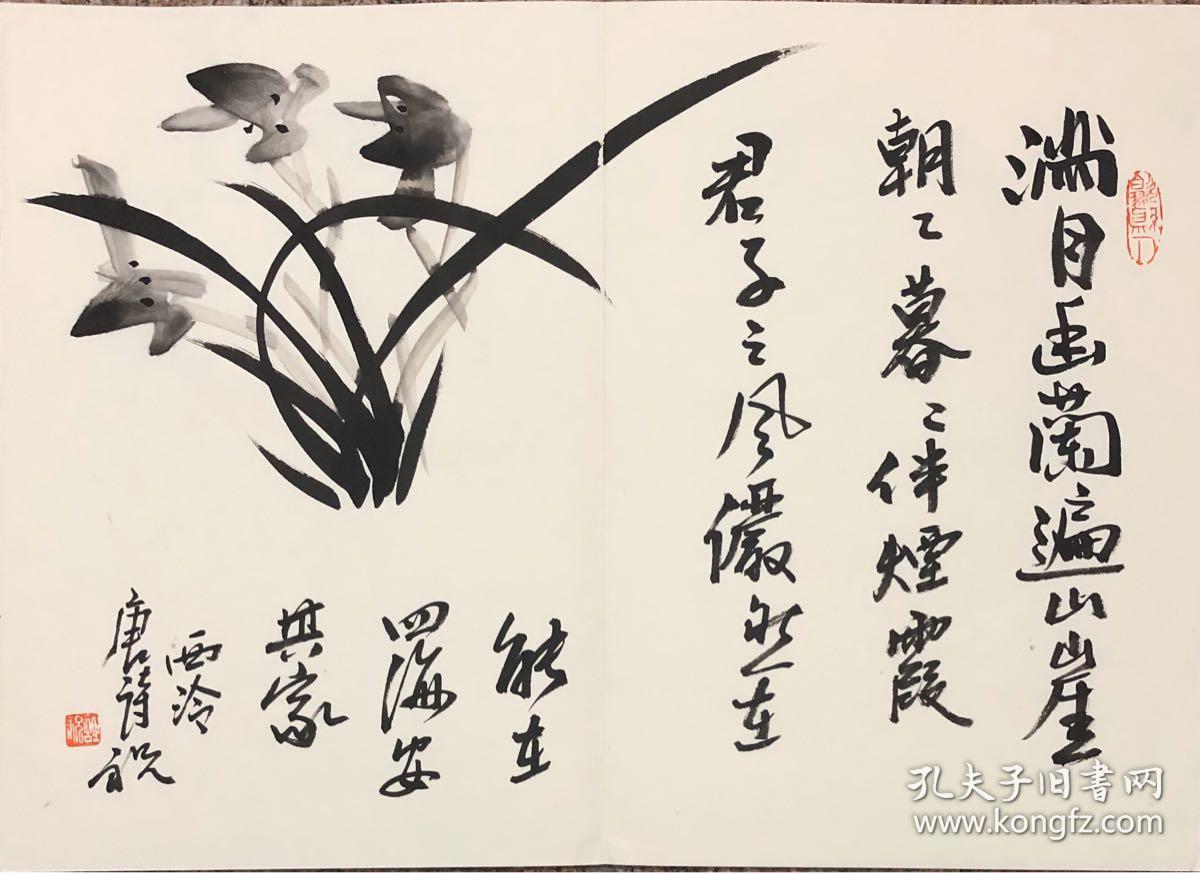 满目幽蘭遍山崖
朝〻暮〻伴煙霞
君子之風儼然在
能在
四海安
其家
西泠
唐詩祝
孔夫子旧书网
www.kongfz.com